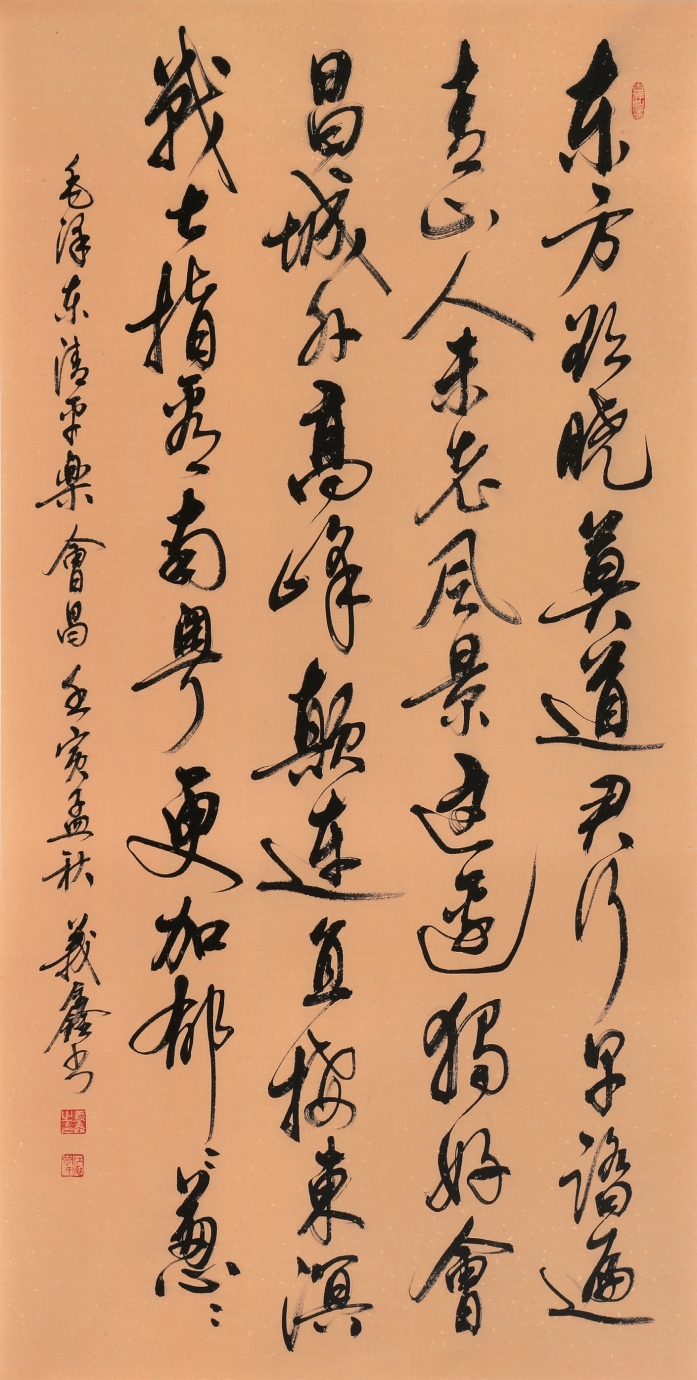 东方欲晓莫道君行早踏遍
青山人未老风景这邊獨好會
昌城外高峰颠连直接東溟
戰士指看南粤更加郁〻葱〻
毛泽东清平樂會昌壬寅孟秋義鑫书